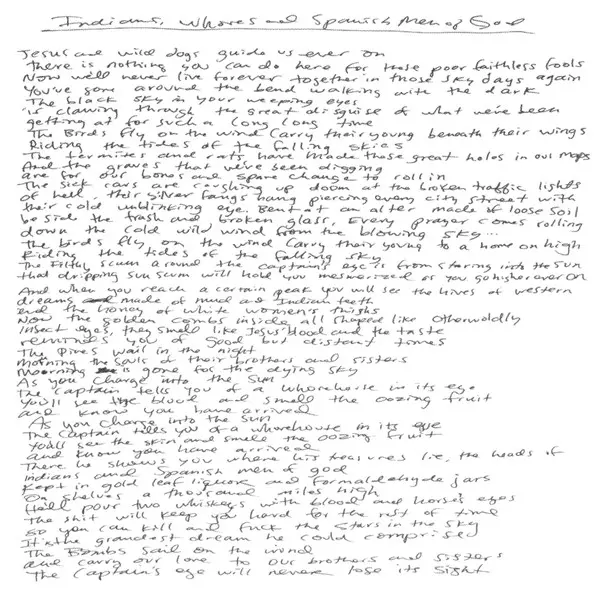 Indians, Whores and Spanish Men of God
Jesus and wild dogs guide us ever on
there is nothing you can do here for those poor faithless fools
Now we'll never live forever together in those sky days again
You've gone around the bend walking with the dark
The black sky in your weeping eyes
is clawing through the great disguise of what we've been
getting at for such a long long time
The Birds fly on the wind carry their young beneath their wings
Riding the tides of the falling skies
The termites and rats have made those great holes in our maps
And the graves that we've been digging
are for our bones and spare change to roll in
The sick cars are coughing up down at the broken traffic lights
of hell their silver fangs hang piercing every city street with
their cold unblinking eye. Bent at an alter made of loose soil
beside the trash and broken glass, Every prayer comes rolling
down the cold wild wind from the blowing sky...
The birds fly on the wind carry their young to a home on high
Riding the tides of the falling sky
The filthy scum around the captains eye is from staring into the sun
that dripping sun scum will hold you mesmerized as you go higher over on
And when you reach a certain peak you will see the hives of western
dreams made of mud and Indian teeth
and the honey of white women's thighs
Now the golden combs inside all shaped like otherworldly
insect eyes, they smell like Jesus' blood and the taste
reminds you of good but distant times
The Pines wail in the night
Morning the souls of their brothers and sisters
Moorning is gone for the dying sky
As you charge into the sun
The captain tells you of a whorehouse in its eye
You'll see the blood and smell the oozing fruit
and know you have arrived
As you charge into the sun
The Captain tells you of a whorehouse in its eye
You'll see the skin and smell the oozing fruit
and know you have arrived
There he shows you where his treasures lie, the heads of
Indians and Spanish men of god
Kept in gold leaf liquor and formaldehyde jars
On shelves a thousand miles high
He'll pour two whiskeys with blood and horse's eyes
The shit will keep you hard for the rest of time
so you can kill and fuck the stars in the sky
It's the grandest dream he could comprise
The Bombs sail on the wind
and carry our love to our brothers and sisters
The Captain's eye will never lose its sight